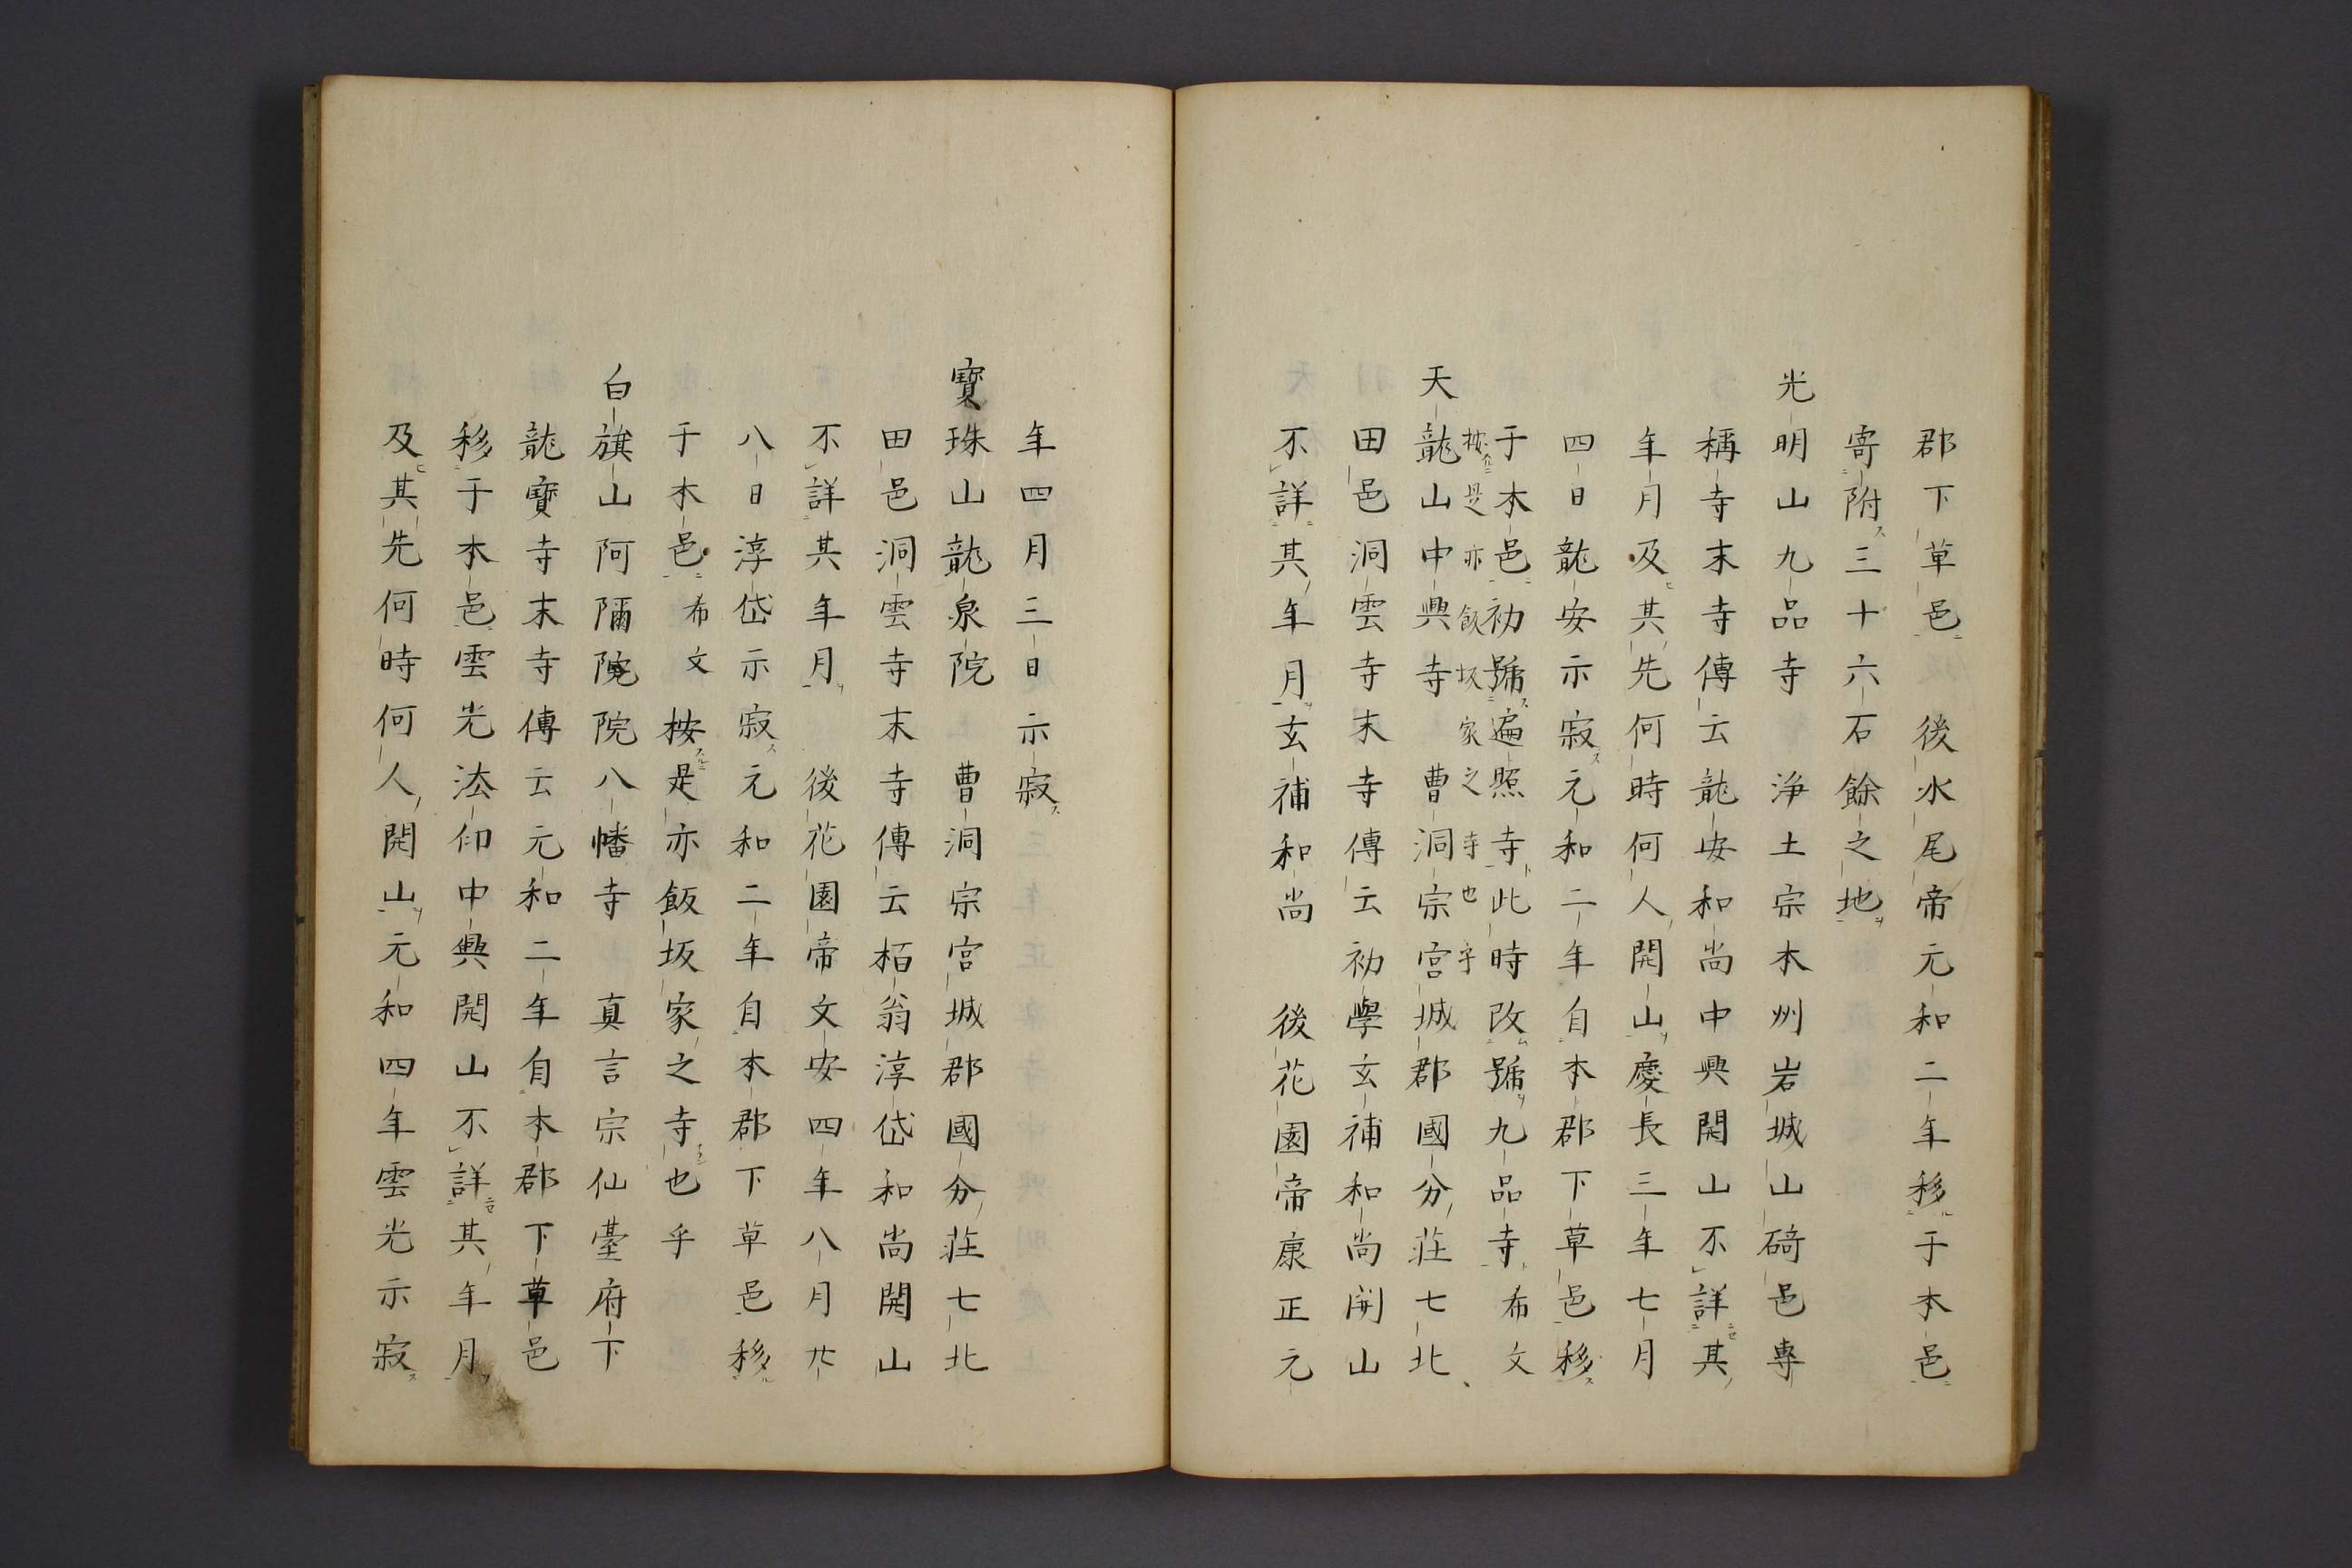 郡下草邑　後水尾帝元和二年移于本邑
寄附三十六石餘之地
光明山九品寺　浄土宗本州岩城山碕邑專
稱寺末寺傳云龍安和尚中興開山不詳其
年月及其先何時何人開山慶長三年七月
四日龍安示寂元和二年自本郡下草邑移
于本邑初號遍照寺此時改號九品寺希文
按是亦飯坂家之寺也乎
天龍山中興寺　曹洞宗宮城郡國分荘七北
田邑洞雲寺末寺傳云初學玄補和尚開山
不詳其年月玄補和尚　後花園帝康正元
年四月三日示寂
寶珠山龍泉院　曹洞宗宮城郡國分荘七北
田邑洞雲寺末寺傳云栢翁淳岱和尚開山
不詳其年月　後花園帝文安四年八月廿
八日淳岱示寂元和二年自本郡下草邑移
于本邑希文　按是亦飯坂家之寺也乎
白旗山阿隬院院八幡寺　真言宗仙臺府下
龍寶寺末寺傳云元和二年自本郡下草邑
移于本邑雲光法印中興開山不詳其年月
及其先何時何人開山元和四年雲光示寂